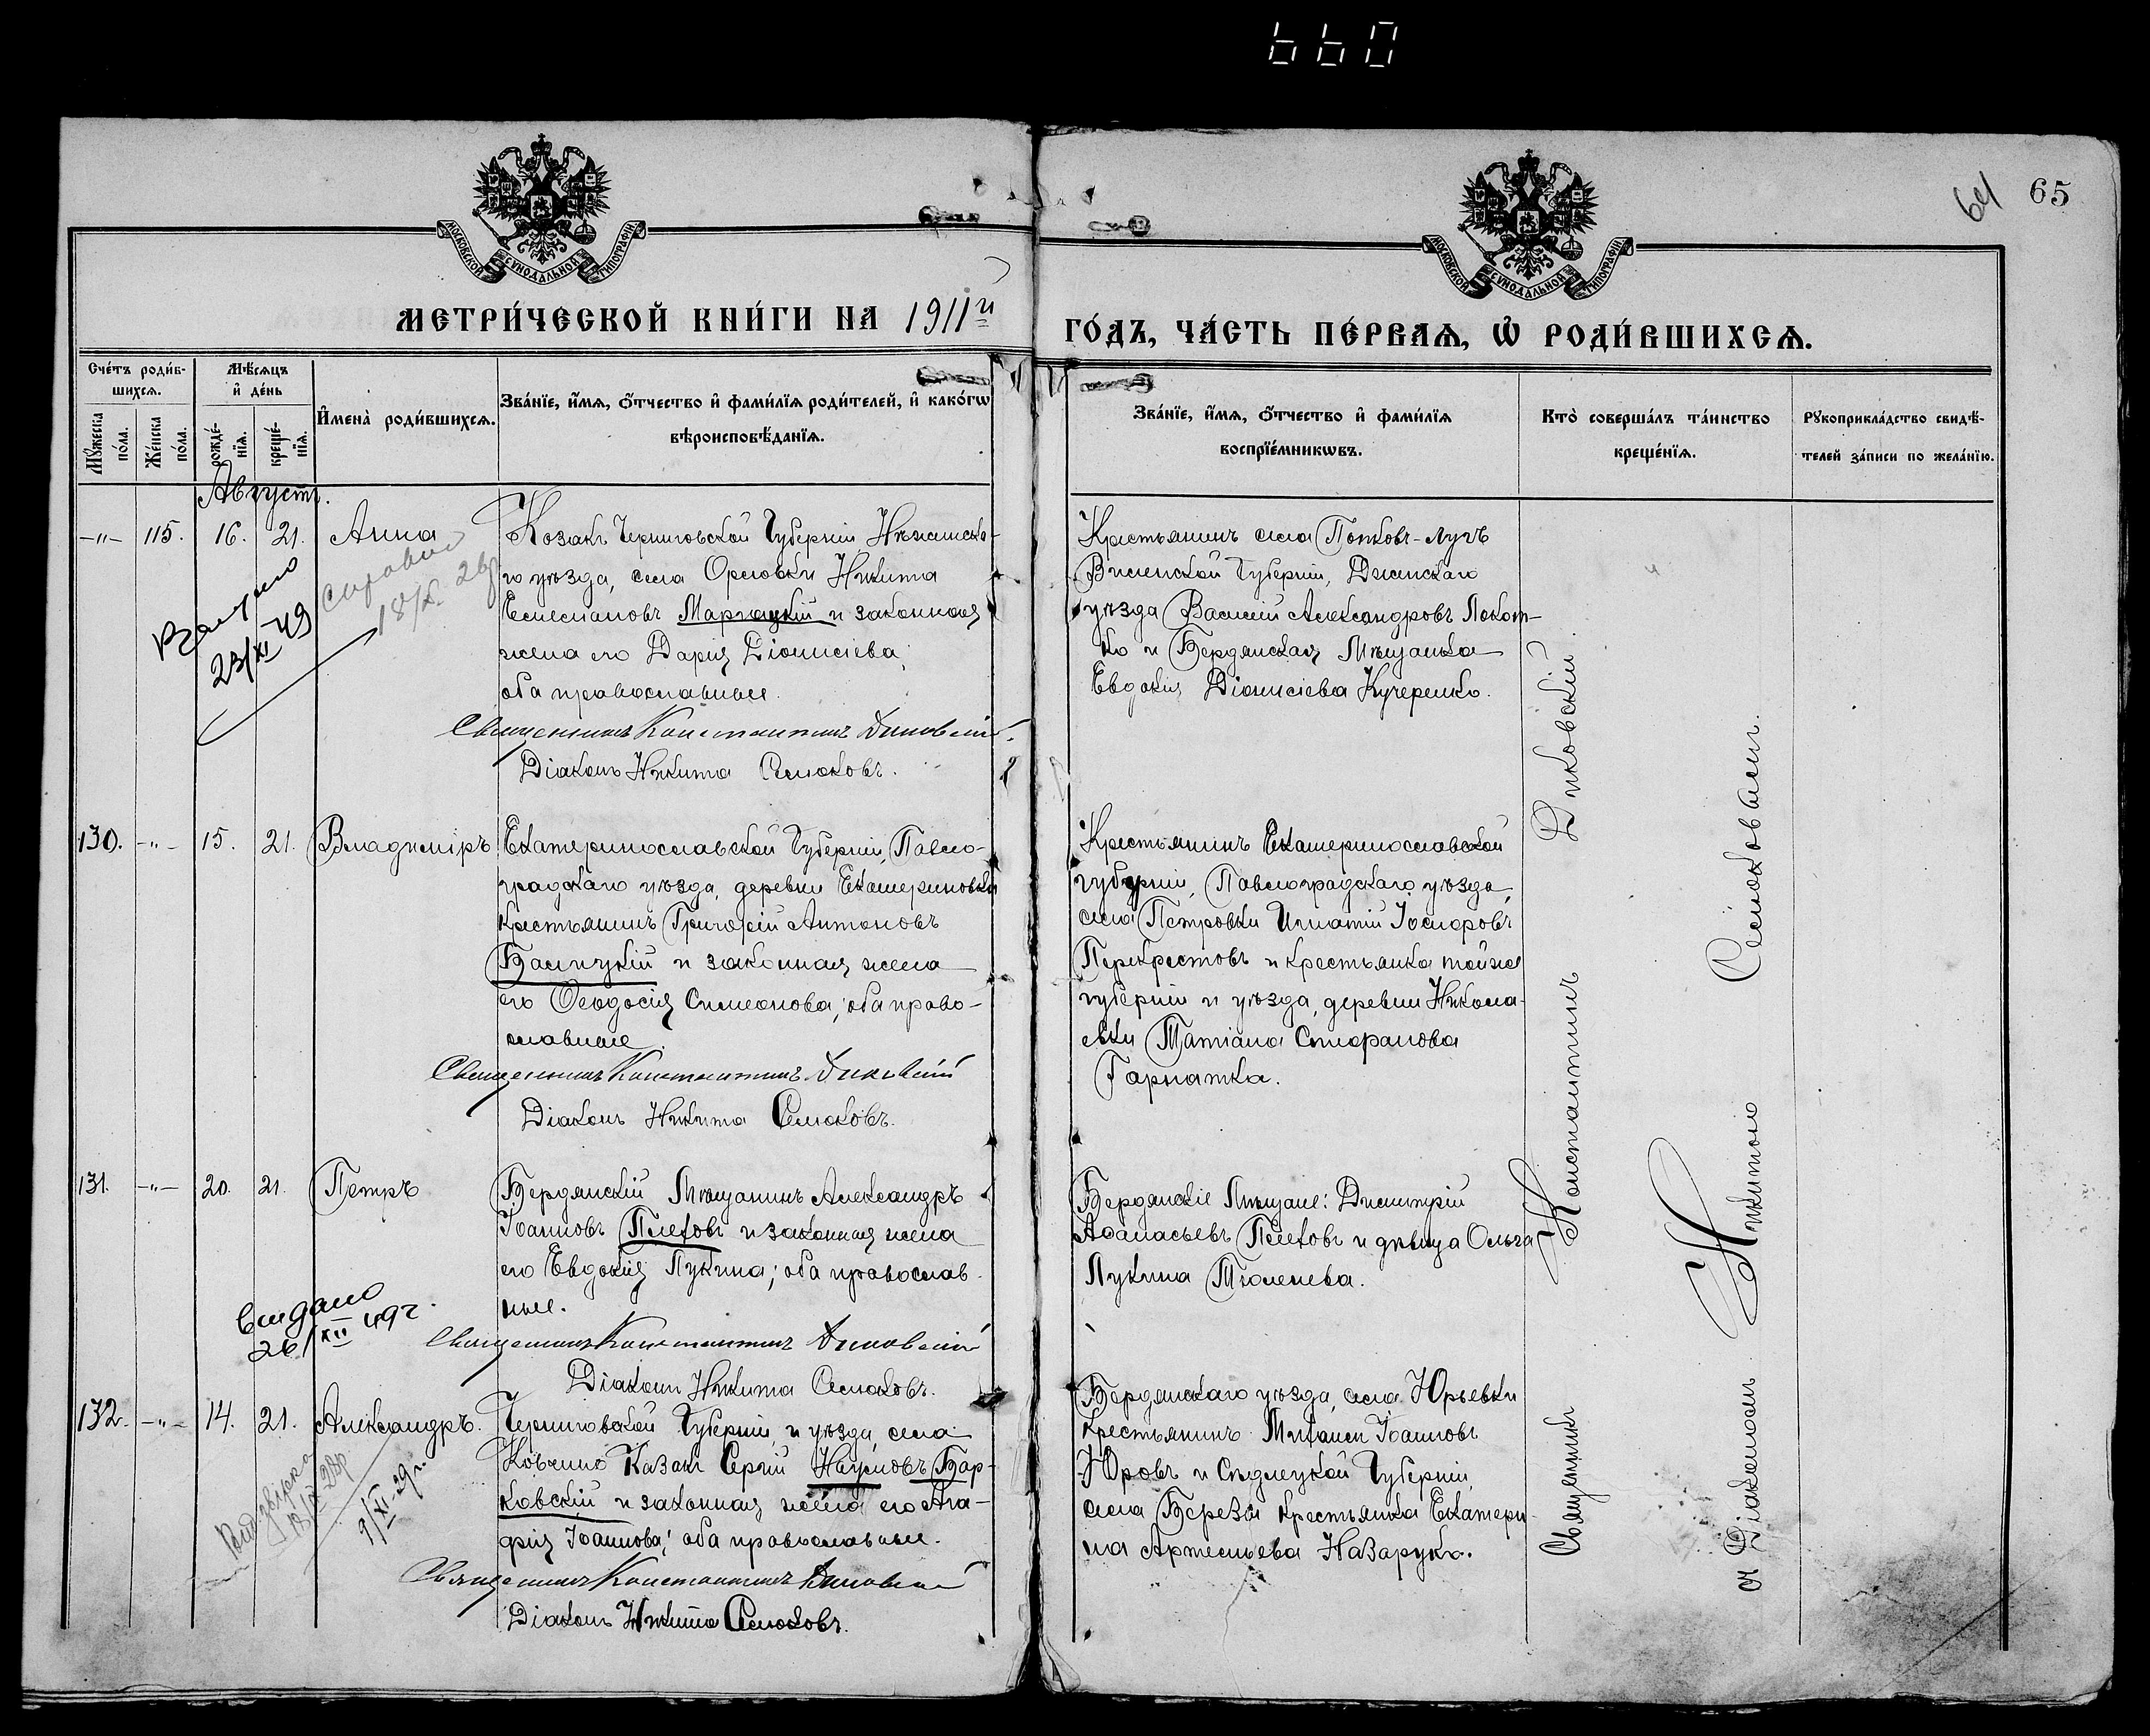 660
64 65
МОСКОВСКОЙ СѴНОДАЛЬНОЙ ТИПОГРАФІИ
МОСКОВСКОЙ СѴНОДАЛЬНОЙ ТИПОГРАФІИ
МЕТРИ́ЧЕСКОЙ КНИ́ГИ НА 1911й
ГО́ДЪ, ЧА́СТЬ ПЕ́РВАѦ, Ѡ҆ РОДИ́ВШИХСѦ.
Сче́тъ роди́в-
шихсѧ.
Мꙋ́жеска по́ла.
Же́нска по́ла.
Мѣ́сѧцъ
и҆ де́нь
рожде́-нїѧ.
креще́-нїѧ.
И҆мена̀ роди́вшихсѧ.
Зва́нїе, и҆́мѧ, ѻ҆́тчество и҆ фами́лїѧ роди́телей, и҆ како́гѡ
вѣроисповѣ́данїѧ.
Зва́нїе, и҆́мѧ, ѻ҆́тчество и҆ фами́лїѧ
воспрїе́мникѡвъ.
Кто̀ соверша́лъ та́инство
креще́нїѧ.
Рꙋкоприкла́дство свидѣ́-
телей за́писи по жела́нїю.
Августъ.
-"- 115. 16. 21. Анна
Козакъ Черниговской Губерніи Нѣжинска-
го уѣзда, села Орловки Никита
Емеліановъ Маргацкій и законная
жена его Дарія Діонисіева;
оба православные.
Священникъ Константинъ Диковскій.
Діаконъ Никита Селюковъ.
23/XI 49
18/X. 28р
Крестьянинъ села Попковъ-Лугъ
Виленской Губерніи, Дисенскаго
уѣзда Василій Александровъ Локот-
ко и Бердянская Мѣщанка
Евдокія Діонисіева Кучеренко.
130. -"- 15. 21. Владиміръ
Екатеринославской Губерніи, Павло-
градскаго уѣзда, деревни Екатериновки
крестьянинъ Григорій Антоновъ
Балицкій и законная жена
его Ѳеодосія Симеонова; оба право-
славные.
Священникъ Константинъ Диковскій
Діаконъ Никита Селюковъ.
Крестьянинъ Екатеринославской
губерніи, Павлоградскаго уѣзда,
села Петровки Игнатій Іосифовъ
Перекрестовъ и крестьянка той же
губерніи и уѣзда, деревни Никола-
евки Татіана Стефанова
Гарнатка.
131. -"- 20. 21. Петръ
Бердянскій Мѣщанинъ Александръ
Іоанновъ Плеховъ и законная жена
его Евдокія Лукина; оба православ-
ные.
Священникъ Константинъ Диковскій
Діаконъ Никита Селюковъ.
Видано
26/XII 49г.
Бердянскіе Мѣщане: Димитрій
Аѳанасьевъ Плеховъ и дѣвица Ольга
Лукина Тюленева.
132. -"- 14. 21. Александръ.
Черниговской Губерніи и уѣзда, села
Ковчина Казакъ Сергій Наумовъ Бар-
ковскій и законная жена его Ага-
фія Іоаннова; оба православные.
Священникъ Константинъ Диковскій
Діаконъ Никита Селюковъ.
9/XI-29г.
Бердянскаго уѣзда, села Юрьевки
крестьянинъ Михаилъ Іоанновъ
Юровъ и Сѣдлецкой Губерніи,
села Березы крестьянка Екатери-
на Артемьева Назарукъ.
Священникъ Константинъ Диковскій
съ Діакономъ Никитою Селюковымъ.